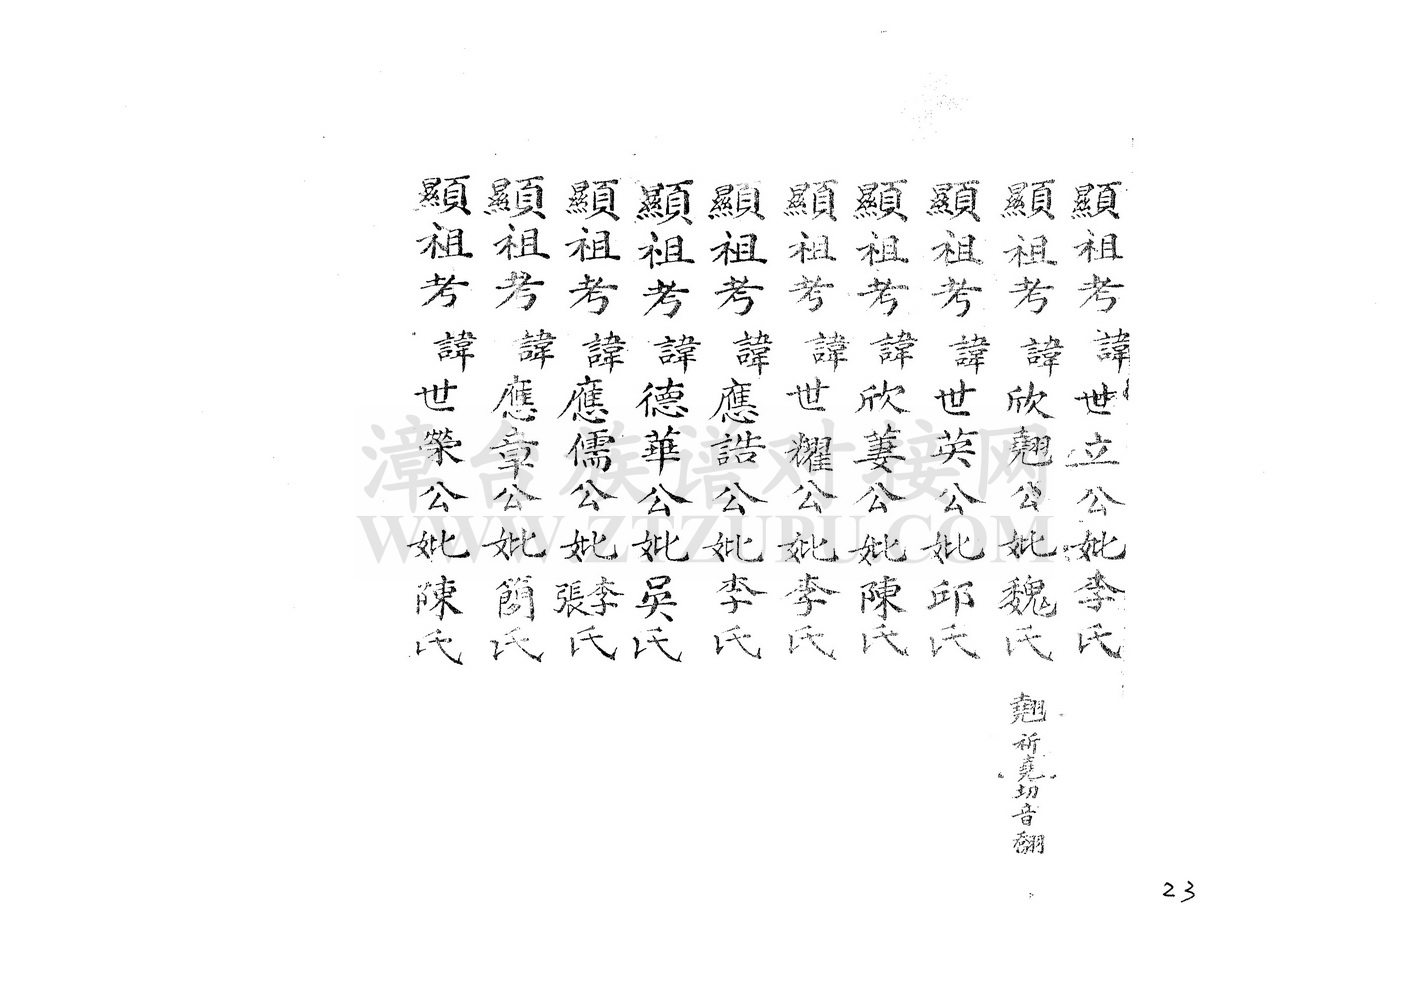 顯祖考諱世立公妣李氏
顯祖考諱欣翹公妣魏氏
翹祈堯切音翿
顯祖考諱世英公妣邱氏
顯祖考諱欣萋公妣陳氏
顯祖考諱世耀公妣李氏
顯祖考諱應誥公妣李氏
顯祖考諱德華公妣吳氏
顯祖考諱應儒公妣李張氏
顯祖考諱應章公妣簡氏
顯祖考諱世榮公妣陳氏
23
漳台族谱对接网
WWW.ZTZUPU.COM